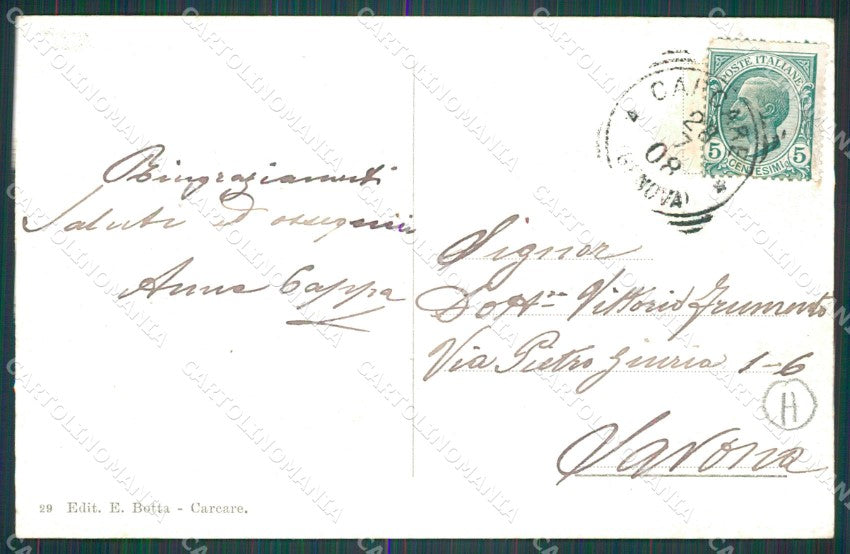 Ringraziamenti
Saluti ed ossequi
Anna Cappa
Signor
Dott.re Vittorio Frumento
Via Pietro Giuria 1-6
Savona
29 Edit. E. Botta - Carcare.
POSTE ITALIANE
5 CENTESIMI 5
08
H
CARTOLINOMANIA